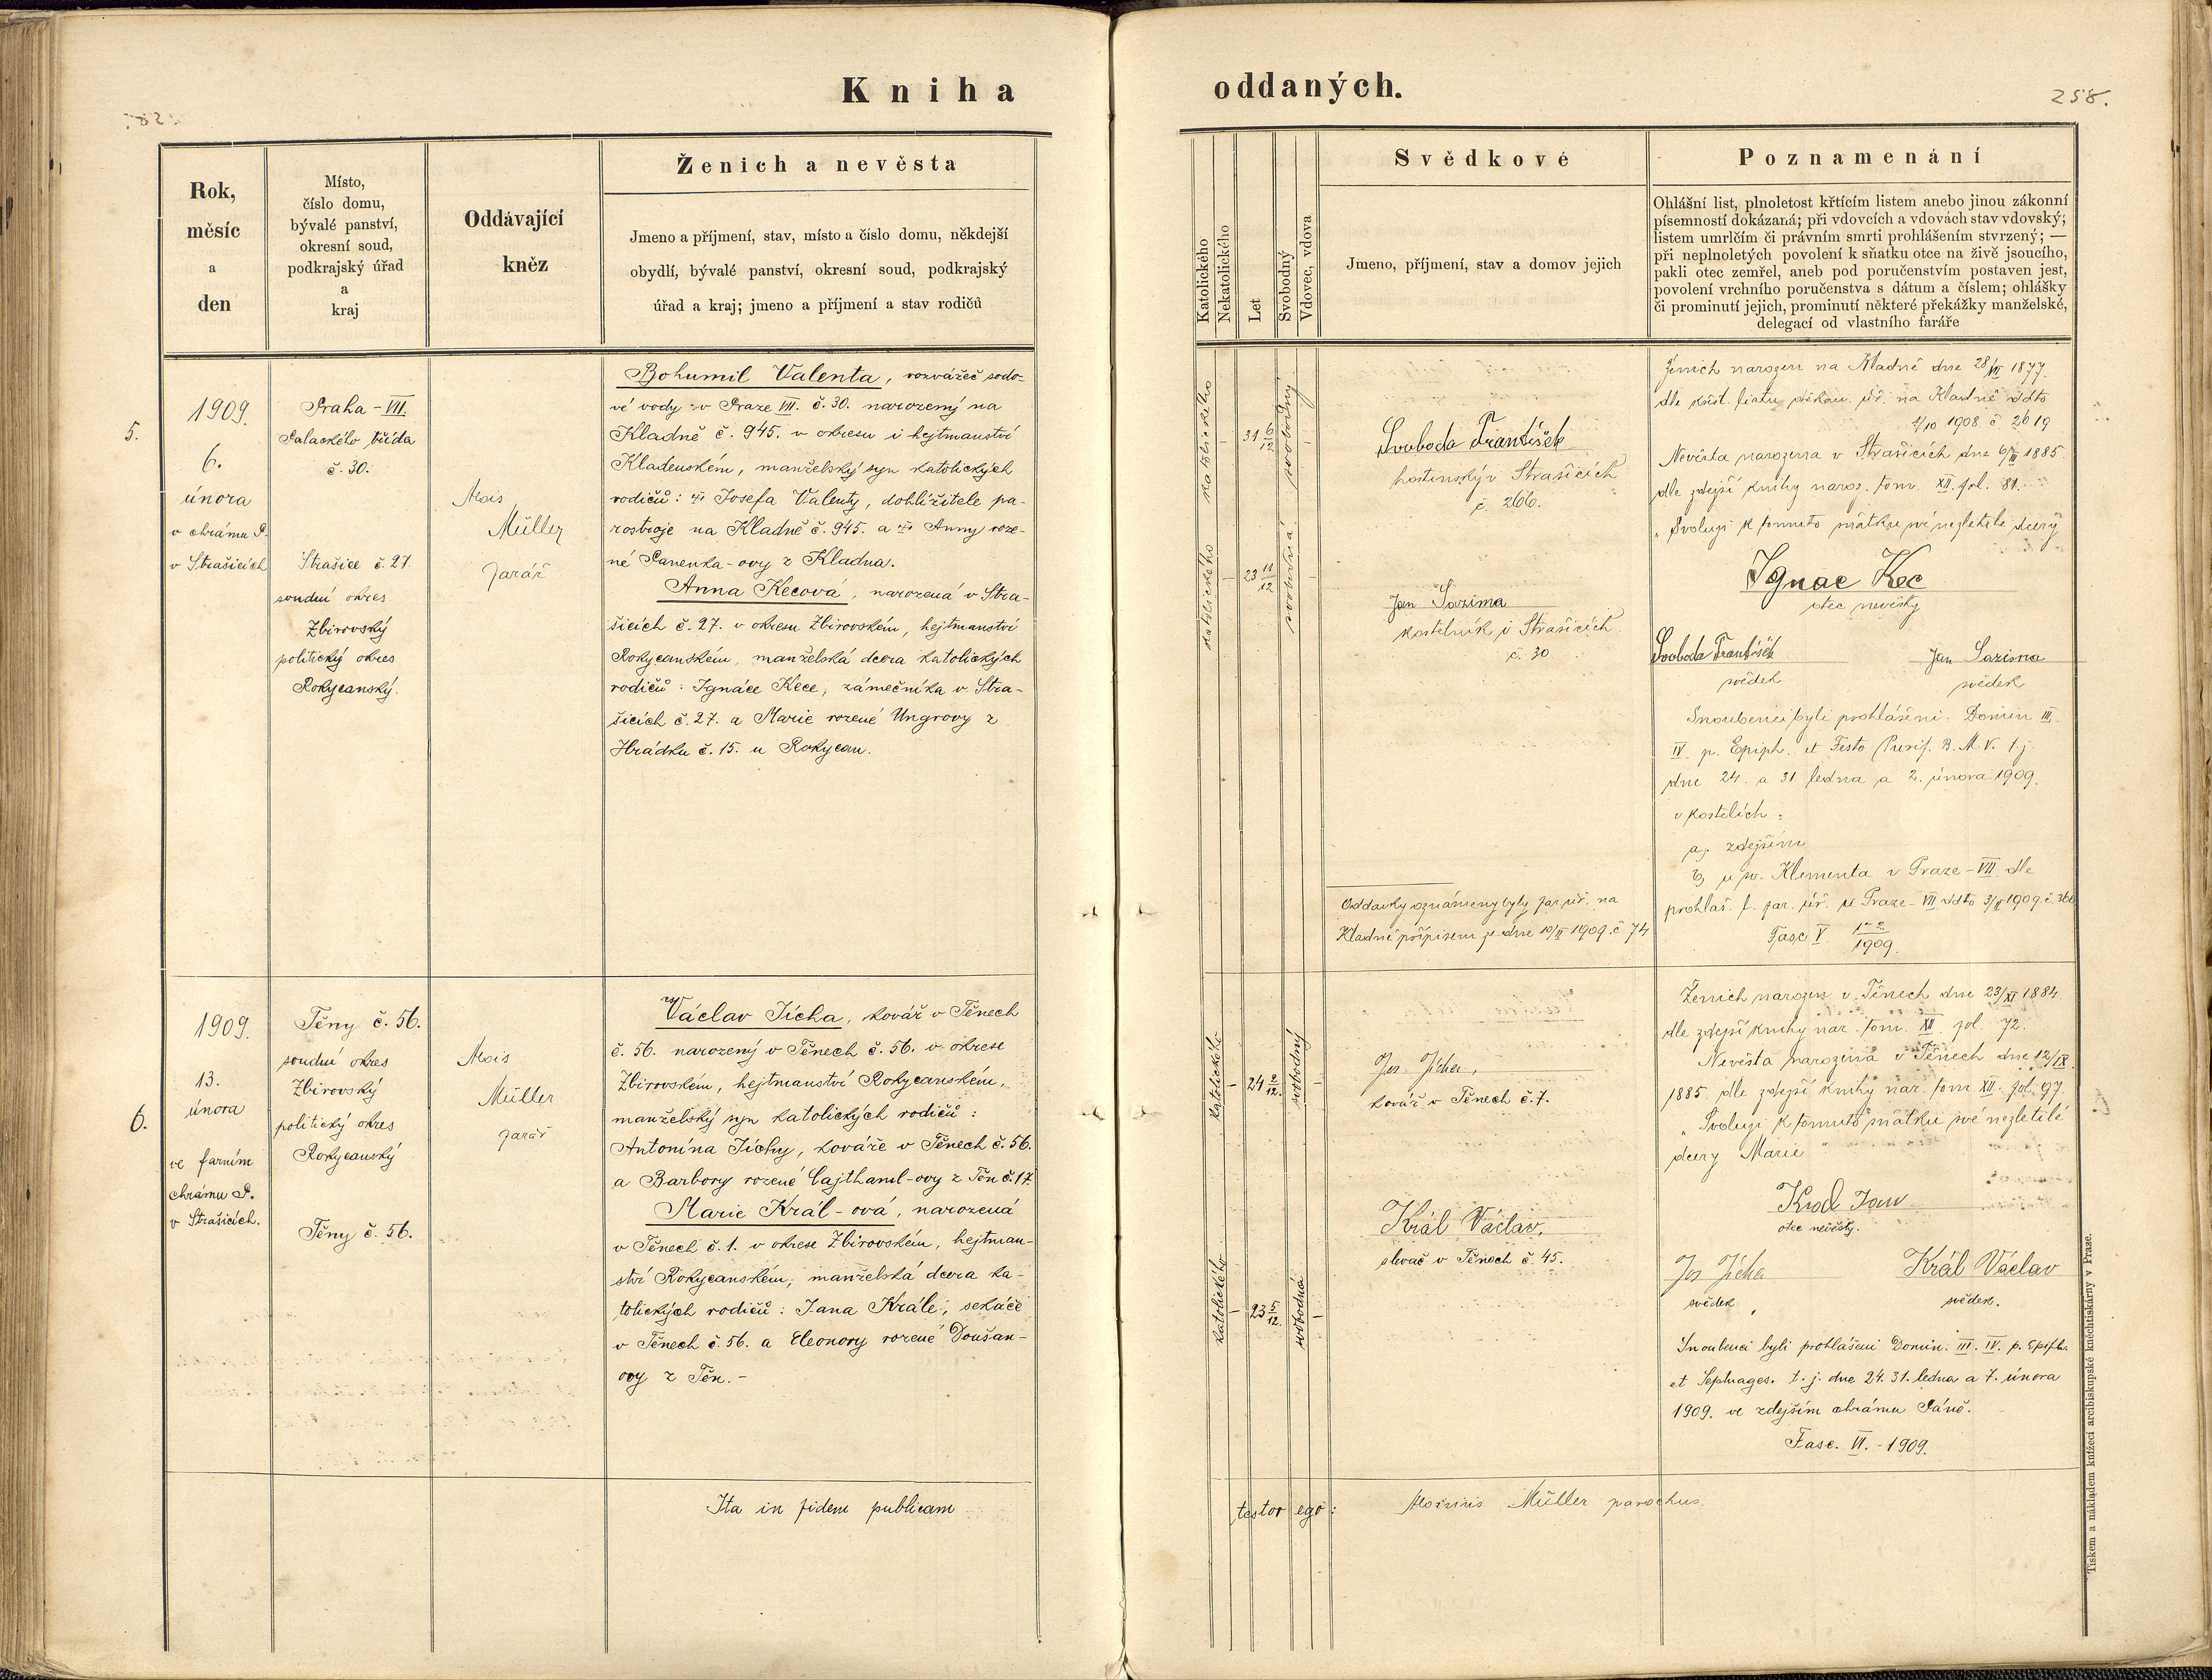 Kniha
oddaných.
258.
Rok,
měsíc
a
den
Místo,
číslo domu,
bývalé panství,
okresní soud,
podkrajský úřad
a
kraj
Oddávající
kněz
Ženich a nevěsta
Jmeno a příjmení, stav, místo a číslo domu, někdejší
obydlí, bývalé panství, okresní soud, podkrajský
úřad a kraj; jmeno a příjmení a stav rodičů
Katolického
Nekatolického
Let
Svobodný
Vdovec, vdova
Svědkové
Jmeno, příjmení, stav a domov jejich
Poznamenání
Ohlášní list, plnoletost křtícím listem anebo jinou zákonní
písemností dokázaná; při vdovcích a vdovách stav vdovský;
listem umrlčím či právním smrti prohlášením stvrzený; —
při neplnoletých povolení k sňatku otce na živě jsoucího,
pakli otec zemřel, aneb pod poručenstvím postaven jest,
povolení vrchního poručenstva s dátum a číslem; ohlášky
či prominutí jejich, prominutí některé překážky manželské,
delegací od vlastního faráře
5.
1909.
6.
února
v chrámu P.
v Strašicích
Praha - VII.
Palackého třída
č. 30.
Strašice č. 27.
soudní okres
Zbirovský
politický okres
Rokycanský.
Alois
Müller
farář
Bohumil Valenta, rozvážeč sodo-
vé vody v Praze VII. č. 30. narozený na
Kladně č. 945. v okresu i hejtmanství
Kladenském, manželský syn katolických
rodičů: Josefa Valenty, dohlížitele pa-
rostroje na Kladně č. 945. a Anny roze-
né Panenka-ovy z Kladna.
Anna Kecová, narozená v Stra-
šicích č. 27. v okresu Zbirovském, hejtmanství
Rokycanském, manželská dcera katolických
rodičů: Ignáce Kece, zámečníka v Stra-
šicích č. 27. a Marie rozené Ungrovy z
Hrádku č. 15. u Rokycan.
katolického
31 6/12
svobodný
katolického
23 11/12
svobodná
Svoboda František
hostinský v Strašicích
č. 266.
Jan Sazima
kostelník v Strašicích
č. 30.
Oddavky oznámeny byly far. úř. na
Kladně přípisem ze dne 10/II 1909. č. 74
Ženich narozen na Kladně dne 28/VII 1877.
dle křest. listu děkan. úř. na Kladně ddto
1/10 1908 č 2619
Nevěsta narozena v Strašicích dne 6/III 1885.
dle zdejší knihy naroz. tom. XII. fol. 81.
„Svoluji k tomuto sňatku své nezletilé dcery
Ignac Kec
otec nevěsty
Svoboda František
svědek
Jan Sazima
svědek
Snoubenci byli prohlášeni: Domin III.
IV p. Epiph. et Festo Purif. B. M. V. t. j.
dne 24. a 31 ledna a 2. února 1909.
v kostelích:
a, zdejším
b, u sv. Klementa v Praze - VII. dle
prohlaš. l. far. úř. v Praze - VII. ddto 3/II 1909. č. 360
Fasc V 1-2/1909.
6.
1909.
13.
února
ve farním
chrámu P.
v Strašicích.
Těny č. 56.
soudní okres
Zbirovský
politický okres
Rokycanský
Těny č. 56.
Alois
Müller
farář
Václav Jícha, kovář v Těnech
č. 56. narozený v Těnech č. 56. v okrese
Zbirovském, hejtmanství Rokycanském,
manželský syn katolických rodičů:
Antonína Jíchy, kováře v Těnech č. 56.
a Barbory rozené Cajthaml-ovy z Těn č. 17.
Marie Král-ová, narozená
v Těnech č. 1. v okrese Zbirovském, hejtman-
ství Rokycanském, manželská dcera ka-
tolických rodičů: Jana Krále, sekáče
v Těnech č. 56. a Eleonory rozené Doušan-
ovy z Těn. -
katolického
24 2/12.
svobodný
katolického
23 5/12.
svobodná
Jos Jícha,
kovář v Těnech č. 7.
Král Václav,
slevač v Těnech č. 45.
Ženich narozen v Těnech dne 23/XI 1884.
dle zdejší knihy nar. tom. XII. fol. 72.
Nevěsta narozena v Těnech dne 12/IX.
1885. dle zdejší knihy nar. tom XII. fol. 97
„Svoluji k tomuto sňatku své nezletilé
dcery Marie"
Král Jan
otec nevěsty.
Jos Jícha
svědek,
Král Václav
svědek.
Snoubenci byli prohlášeni Domin. III. IV. p. Epiph.
et Septuages. t. j. dne 24. 31. ledna a 7. února
1909. ve zdejším chrámu Páně.
Fasc. VI. - 1909.
Ita in fidem publicam
testor ego:
Aloisius Müller parochus.
Tiskem a nákladem knížecí arcibiskupské knihtiskárny v Praze.